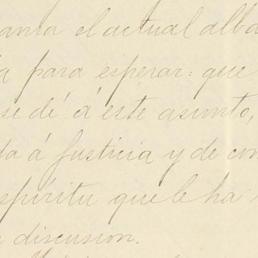 el actual alba
para esperar: que
se dé á este asunto,
á justicia y de con
spíritu que le ha
discusion.